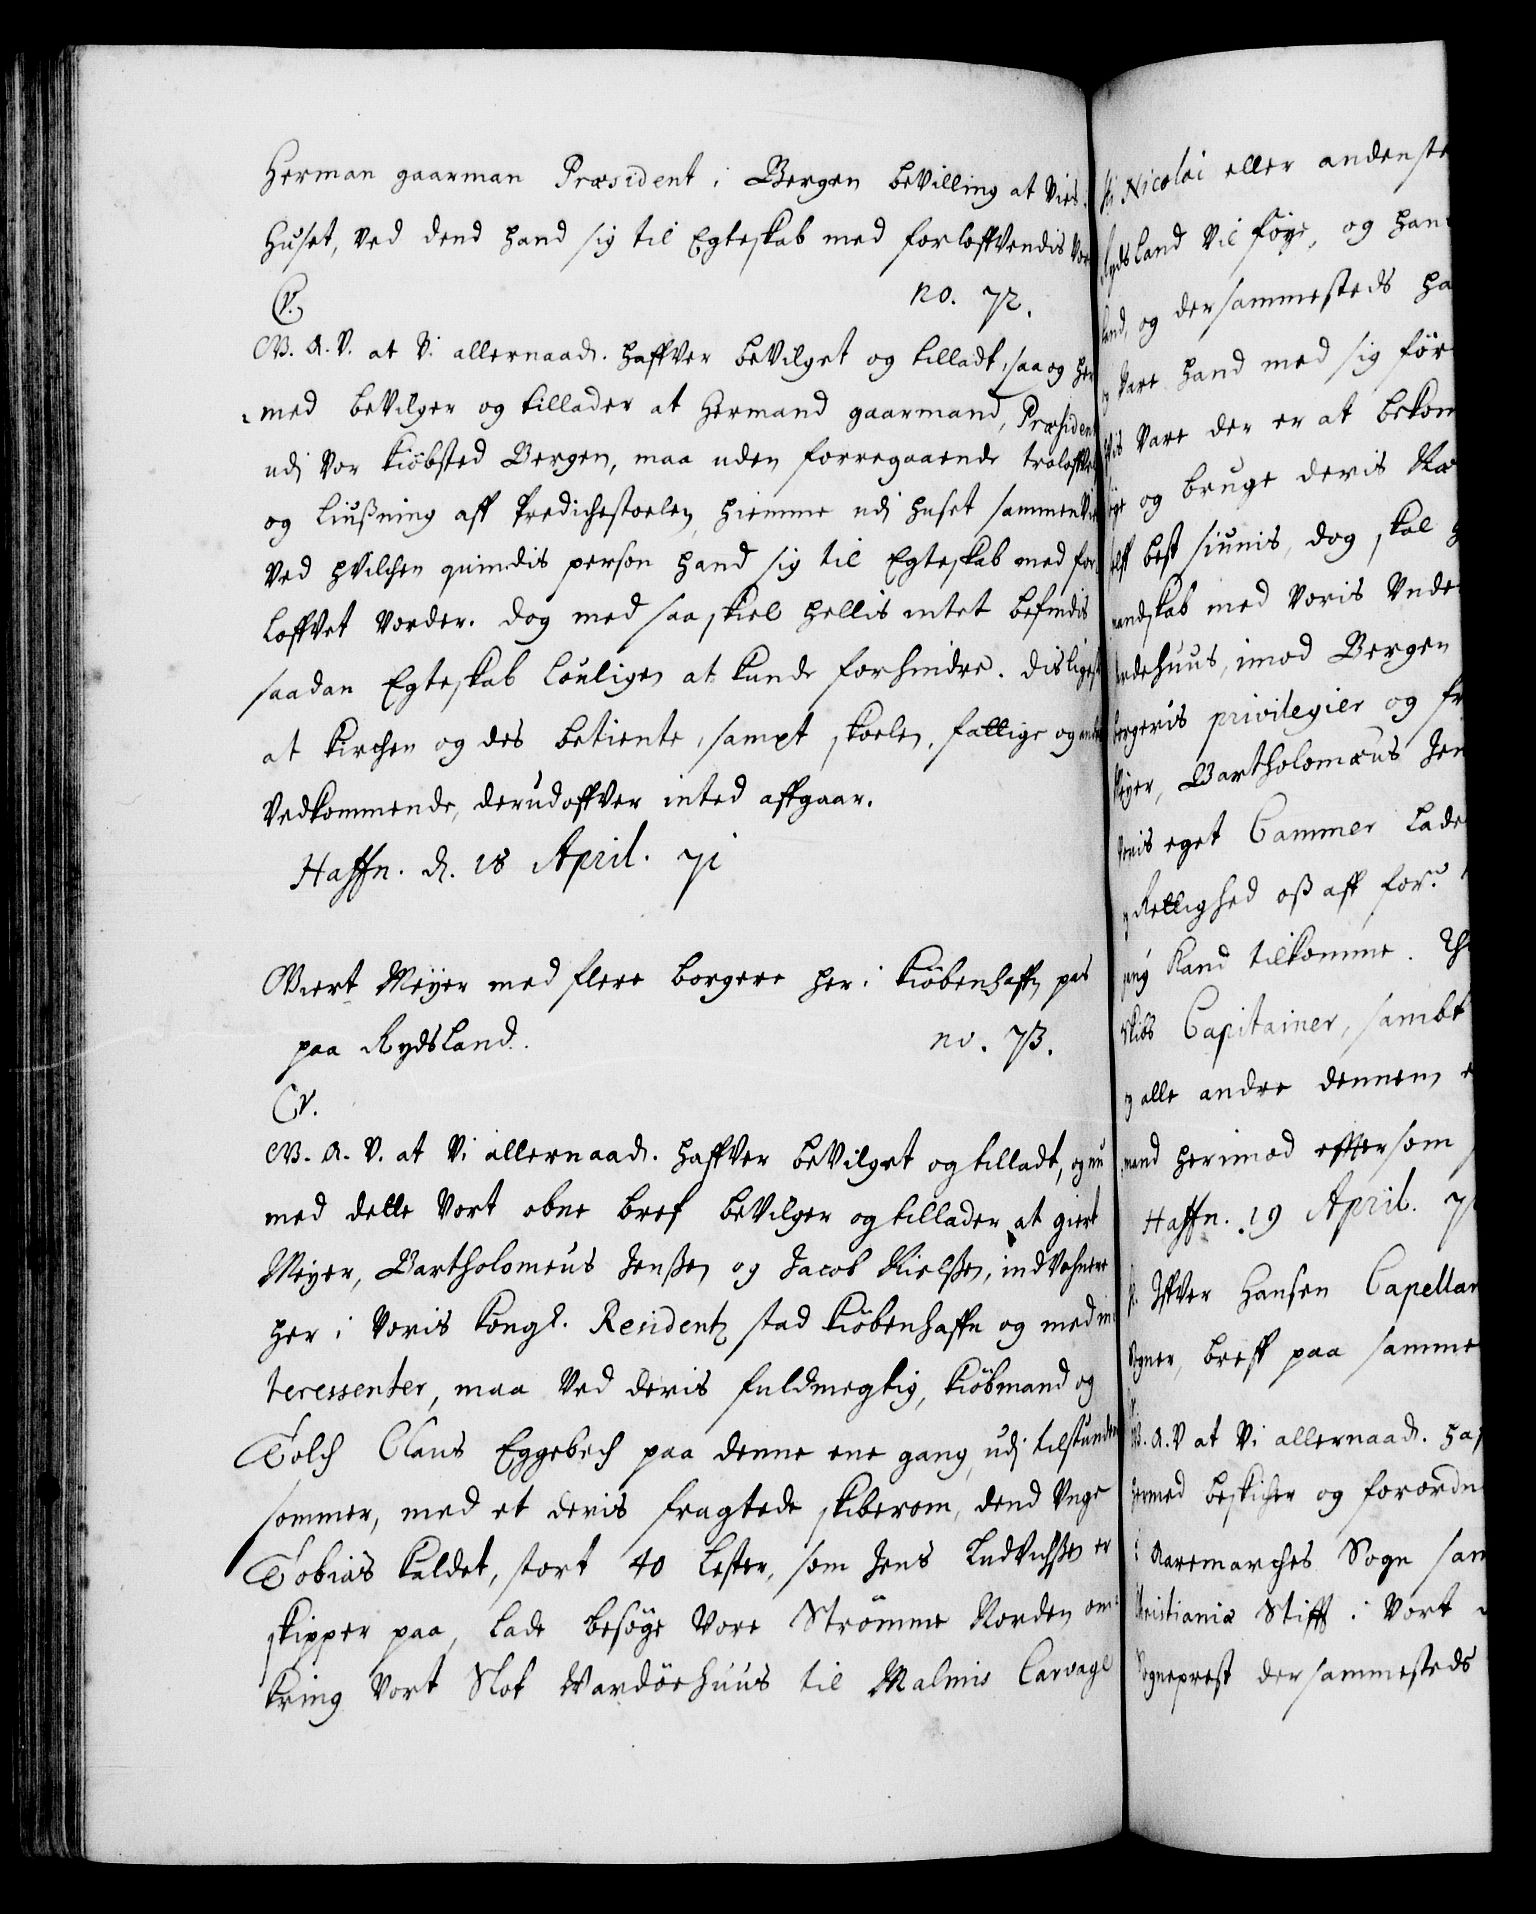 Herman gaarman Præsident i Bergen beVilling at Vies i
Huset, ved dend hand sig til Egteskab med forloffVendis Vor
no. 72.
C5.
G. A. V. at Vi allernaad. haffVer beVilget og tilladt, saa og her
med beVilger og tillader at Hermand gaarmand, Præsident
udj Vor kiöbsted Bergen, maa uden forregaaende troloffVel
og liusning aff Predichestoelen, hiemme udj huset sammenVie
Ved hVilchen quindis person hand sig til Egteskab med for
loffVet Vorder. dog med saa skiel hellis intet befindis
saadan Egteskab louligen at kunde forhindre. disligest
at kirchen og des betiente, sampt skolen, fattige og andre
Vedkommende, derudoffVer inted affgaar.
Haffn. d. 18 April. 71
Giert Meyer med flere borgere her i kiöbenhaffn pas
paa Rydsland.
no. 73.
C5.
G. A. V. at Vi allernaad. haffVer beVilget og tilladt, og nu
med dette Vort obne bref beVilger og tillader at giert
Meyer, Bartholomeus Jenßen og Jacob Nielßen, indVohnere
her i Voris kongl. Residentz stad kiöbenhaffn og med in
teressenter, maa Ved deris fuldmegtig, kiöbmand og
Tolch Claus Eggebech paa denne ene gang udj tilstundende
sommer, med et deris fragtede skiberom, dend Unge
Tobias kaldet, stort 40 Lester, som Jens LudVichßen er
skipper paa, lade besöge Vore Strömme Norden om
kring Vort Slot Wardöehuus til Malmis Carvagl
St Nicolai eller andenste
Rydsland Vil föye, og han
land, og dersammesteds ha
og Vare hand med sig för
Vis Vare der er at bekom
og bruge deris
best siunis, dog skal
mandskab med Voris Unde
Wardehuus, imod Bergen
borgeris privilegier og fr
Meyer, Bartholomæus Jen
Voris eget Cammer lade
og Rettighed oß aff for:
kand tilkomme.
Skibs Capitainer, sambt
og alle andre dennem
mand herimod eftersom
Haffn. 19 April. 71
Hr. IffVer Hansen Capellan
Sogner, breff paa samme
G. A. V at Vi allernaad. haf
hermed beskicher og forordn
i Aaremarches Sogn sam
Christianiæ Stifft i Vort
Sogneprest dersammesteds